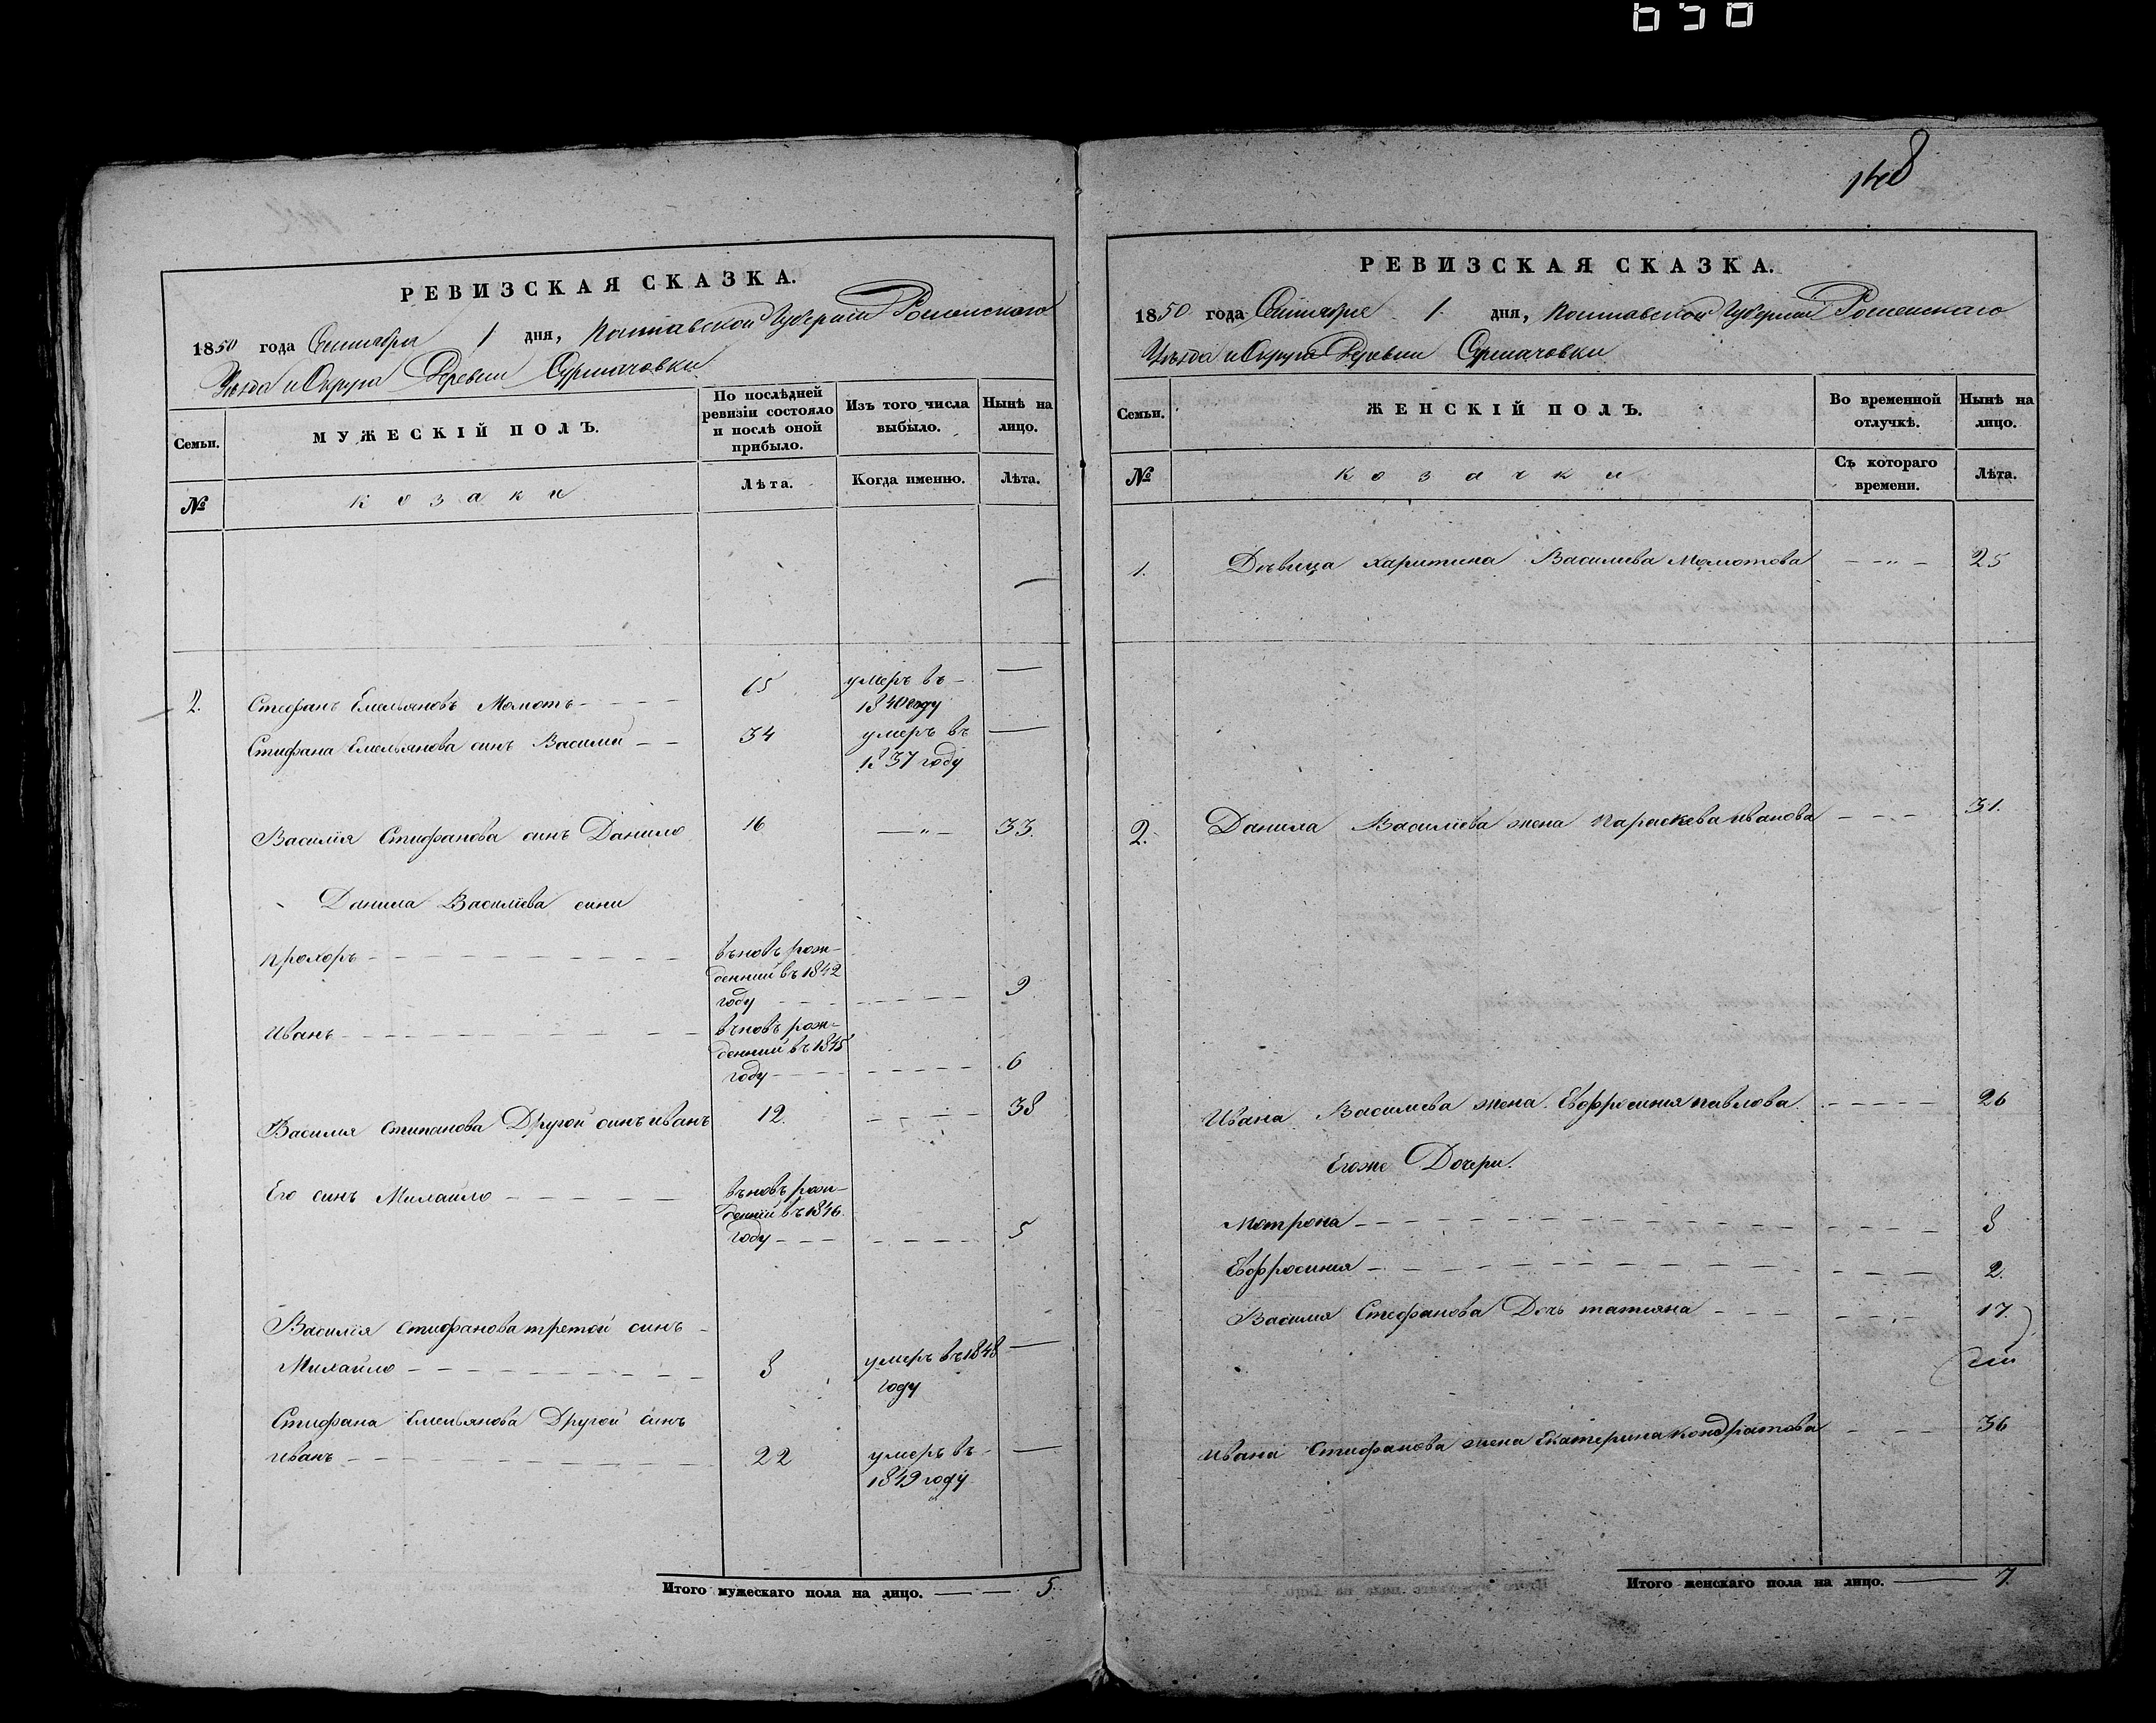 658
РЕВИЗСКАЯ СКАЗКА.
1850 года Сентября 1 дня, Полтавской Губернии Роменскаго
Уѣзда и Округа Деревни Сурмачовки
Семьи.
МУЖЕСКІЙ ПОЛЪ.
По послѣдней ревизіи состояло и послѣ оной прибыло.
Изъ того числа выбыло.
Нынѣ на лицо.
№
козаки
Лѣта.
Когда именно.
Лѣта.
2. Стефанъ Емельяновъ Момотъ - - - - 65 умеръ въ - —
1840 году
Стифана Емельянова синъ Василий - - 34 умеръ въ —
1837 году
Василія Стифанова синъ Данило 16 — " — 33.
Данила Василіева сини
Прохоръ - - - - - - - - - въновь рож-
денний въ 1842
году - - - - - - - - 9
Иванъ - - - - - - - - - въновь рож-
денний въ 1845
году - - - - - - - - 6
Василия Стипанова Другой синъ Иванъ 12. - - - - 38
Его синъ Михайло - - - - - въновь рож-
денний въ 1846
году - - - - - - - 5
Василія Стифанова третой синъ -
Михайло - - - - - - - - 3 умеръ въ 1848 —
году
Стифана Емельянова Другой синъ
Иванъ - - - - - - - - - 22 умеръ въ - —
1849 году
Итого мужескаго пола на лицо. — — 5.
148
РЕВИЗСКАЯ СКАЗКА.
1850 года Сентября 1. дня, Полтавской Губернии Роменскаго
Уѣзда и Округа Деревни Сурмачовки
Семьи.
ЖЕНСКІЙ ПОЛЪ.
Во временной отлучкѣ.
Нынѣ на лицо.
№
козачки
Съ котораго времени.
Лѣта.
1. Дѣвица Харитина Василиева Момотова - - " - 25
2. Данила Василіева жена Параскева Иванова - - - 31.
Ивана Василиева жена Евфросиния Павлова - - - - - 26
Егоже Дочери.
Мотрона - - - - - - - - - - - - - 3
Евфросиния - - - - - - - - - - - - 2.
Василия Стефанова Дочь татияна - - - - - - - 17.
Ивана Стифанова жена Екатерина Кондратова - - - 36
Итого женскаго пола на лицо. — 7.